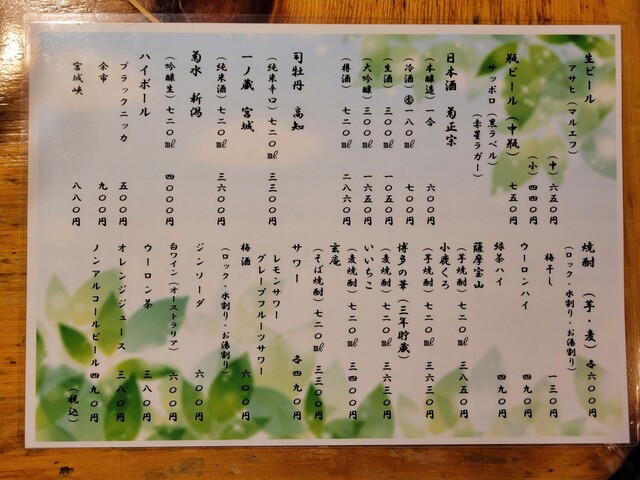 生ビール
アサヒ（マルエフ）
（中）六五〇円
（小）四四〇円
瓶ビール（中瓶）七五〇円
サッポロ（黒ラベル）
（赤星ラガー）
日本酒 菊正宗
（本醸造）一合 六〇〇円
（冷酒）一八〇㎖ 七〇〇円
（生酒）三〇〇㎖ 一〇五〇円
（大吟醸）三〇〇㎖ 一六五〇円
（樽酒）七二〇㎖ 二八六〇円
司牡丹 高知
（純米辛口）七二〇㎖ 三三〇〇円
一ノ蔵 宮城
（純米酒）七二〇㎖ 三六〇〇円
菊水 新潟
（吟醸生）七二〇㎖ 四〇〇〇円
ハイボール
ブラックニッカ 五〇〇円
余市 九〇〇円
宮城峡 八八〇円
焼酎（芋・麦）各六〇〇円
（ロック・水割り・お湯割り）
梅干し 一三〇円
ウーロンハイ 四九〇円
緑茶ハイ 四九〇円
薩摩宝山
（芋焼酎）七二〇㎖ 三八五〇円
小鹿くろ
（芋焼酎）七二〇㎖ 三六三〇円
博多の華（三年貯蔵）
（麦焼酎）七二〇㎖ 三六三〇円
いいちこ
（麦焼酎）七二〇㎖ 三四〇〇円
玄庵
（そば焼酎）七二〇㎖ 三三〇〇円
サワー 各四九〇円
レモンサワー
グレープフルーツサワー
梅酒 六〇〇円
（ロック・水割り・お湯割り）
ジンソーダ 六〇〇円
白ワイン（オーストラリア）六〇〇円
ウーロン茶 三八〇円
オレンジジュース 三八〇円
ノンアルコールビール 四九〇円
（税込）